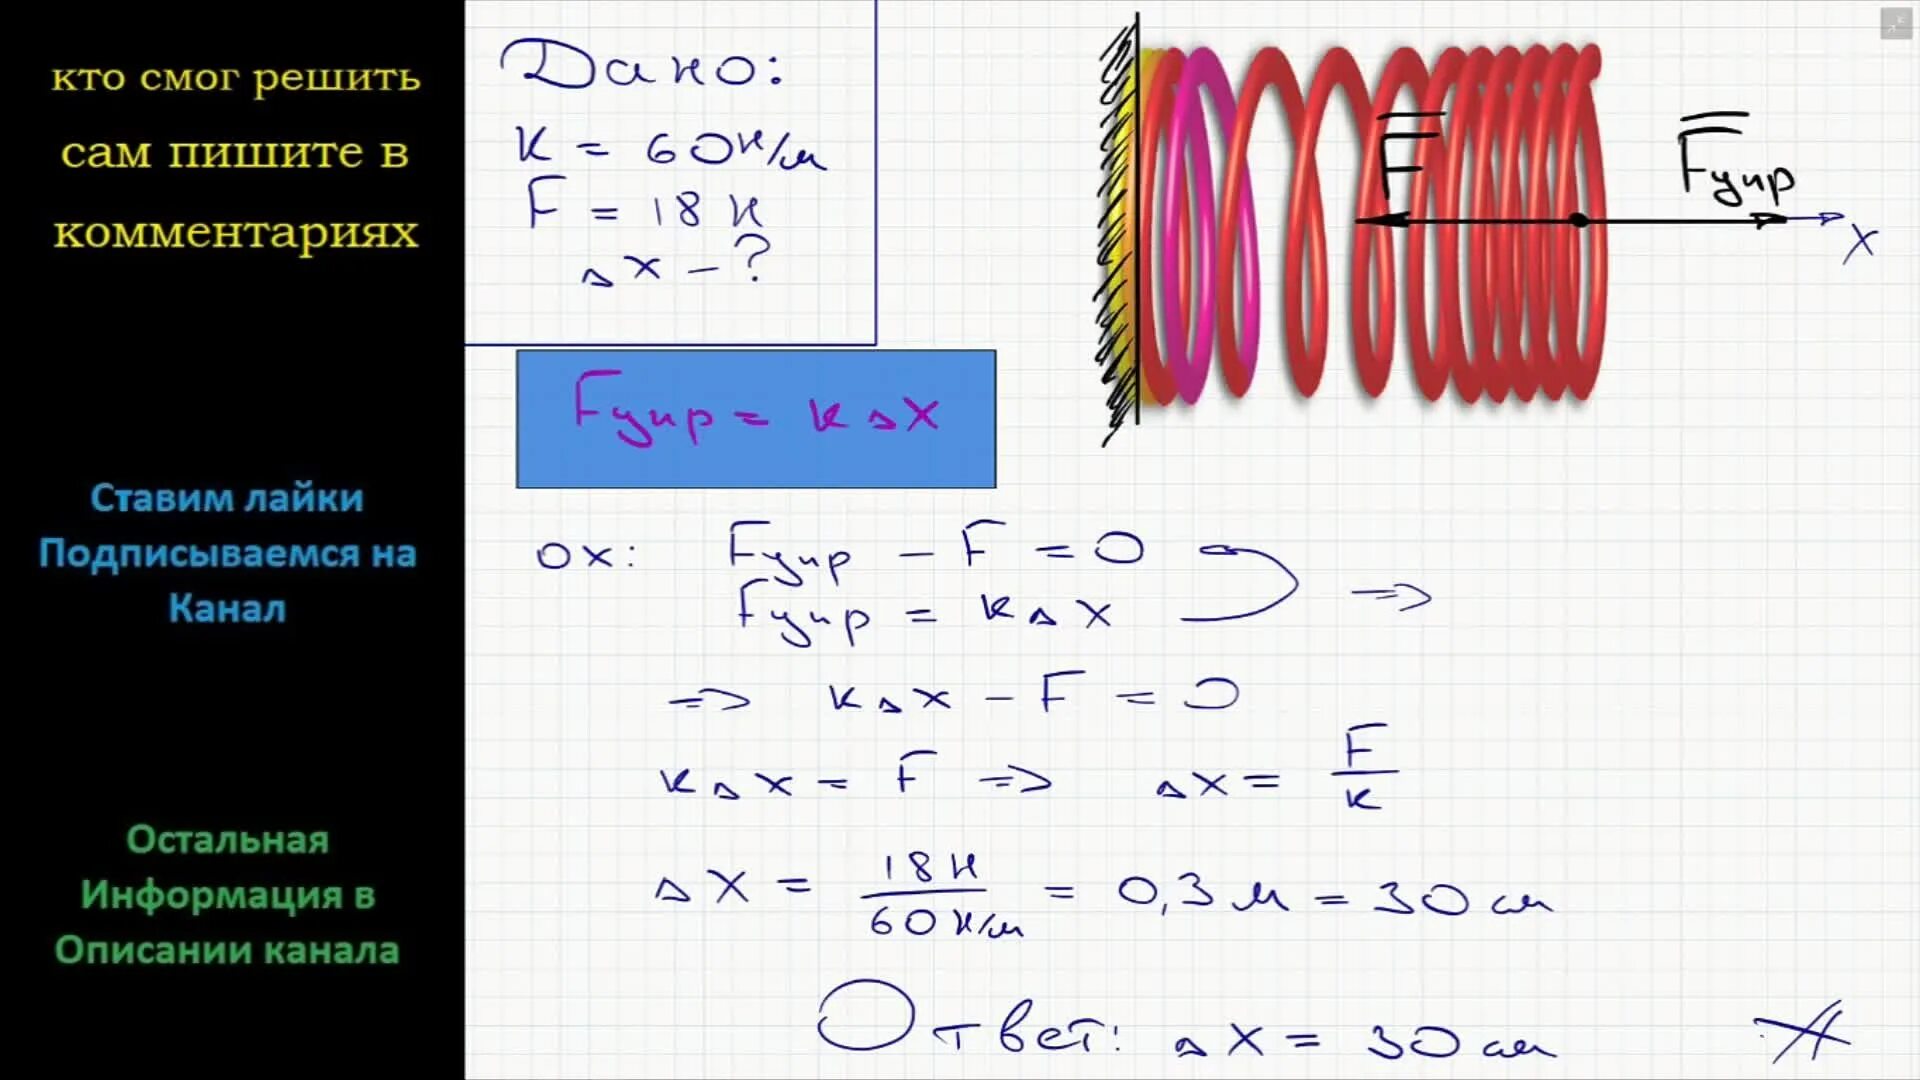 кто смог решить
сам пишите в
комментариях
Ставим лайки
Подписываемся на
Канал
Остальная
Информация в
Описании канала
Дано:
K = 60 н/м
F = 18 н
Δx – ?
Fупр = кΔx
F
Fупр
x
ox: Fупр – F = 0
Fупр = кΔx
⇒
⇒ кΔx – F = 0
кΔx = F ⇒ Δx = F/к
Δx = 18 н / 60 н/м = 0,3 м = 30 см
Ответ: Δx = 30 см